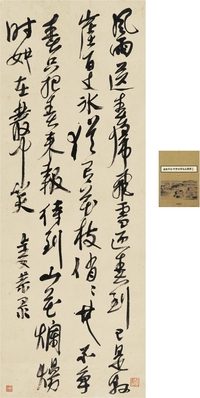 風雨送春歸飛雪迎春到已是懸
崖百丈冰猶有花枝俏〻也不爭
春只把春來報待到山花爛熳
時她在叢中笑